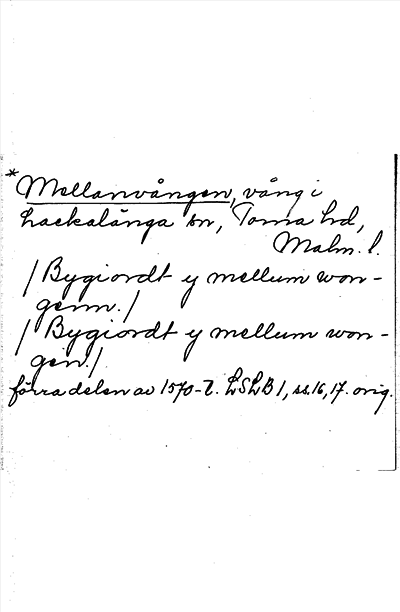 * Mellanvången, vång i
Lackalänga sn, Torna hd,
Malm. l.
/ Bygiordt y mellum won-
genn. /
/ Bygiordt y mellum won-
gin. /
förra delen av 1570-t. LSLB 1, ss. 16, 17. orig.